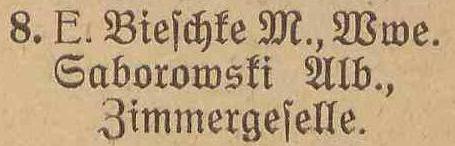 8. E. Bieschke M., Wwe.
Saborowski Alb.,
Zimmergeselle.